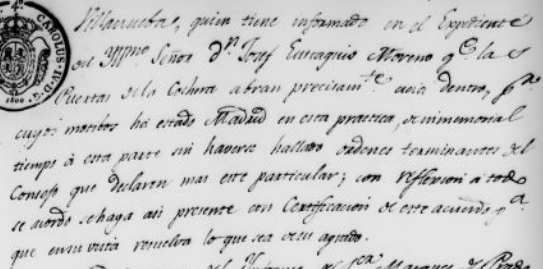 CAROLUS·IV·D·G·
1800
Villanueba, quien tiene informado en el Expediente
del Yllmo. Señor Dn. Josef Eustaquio Moreno qe. las
Puertas de la Cochera abran precisamte. acia dentro, pr.
cuyos motibos ha estado Madrid en esta practica, de inmemorial
tiempo á esta parte sin haverse hallado ordenes terminantes del
Consejo que declaren mas este particular; con reflexion á todo
se acordó se haga asi presente con Certificacion de este acuerdo, pa.
que en su vista resuelva lo que sea de su agrado.
del Informe Sor. Marques